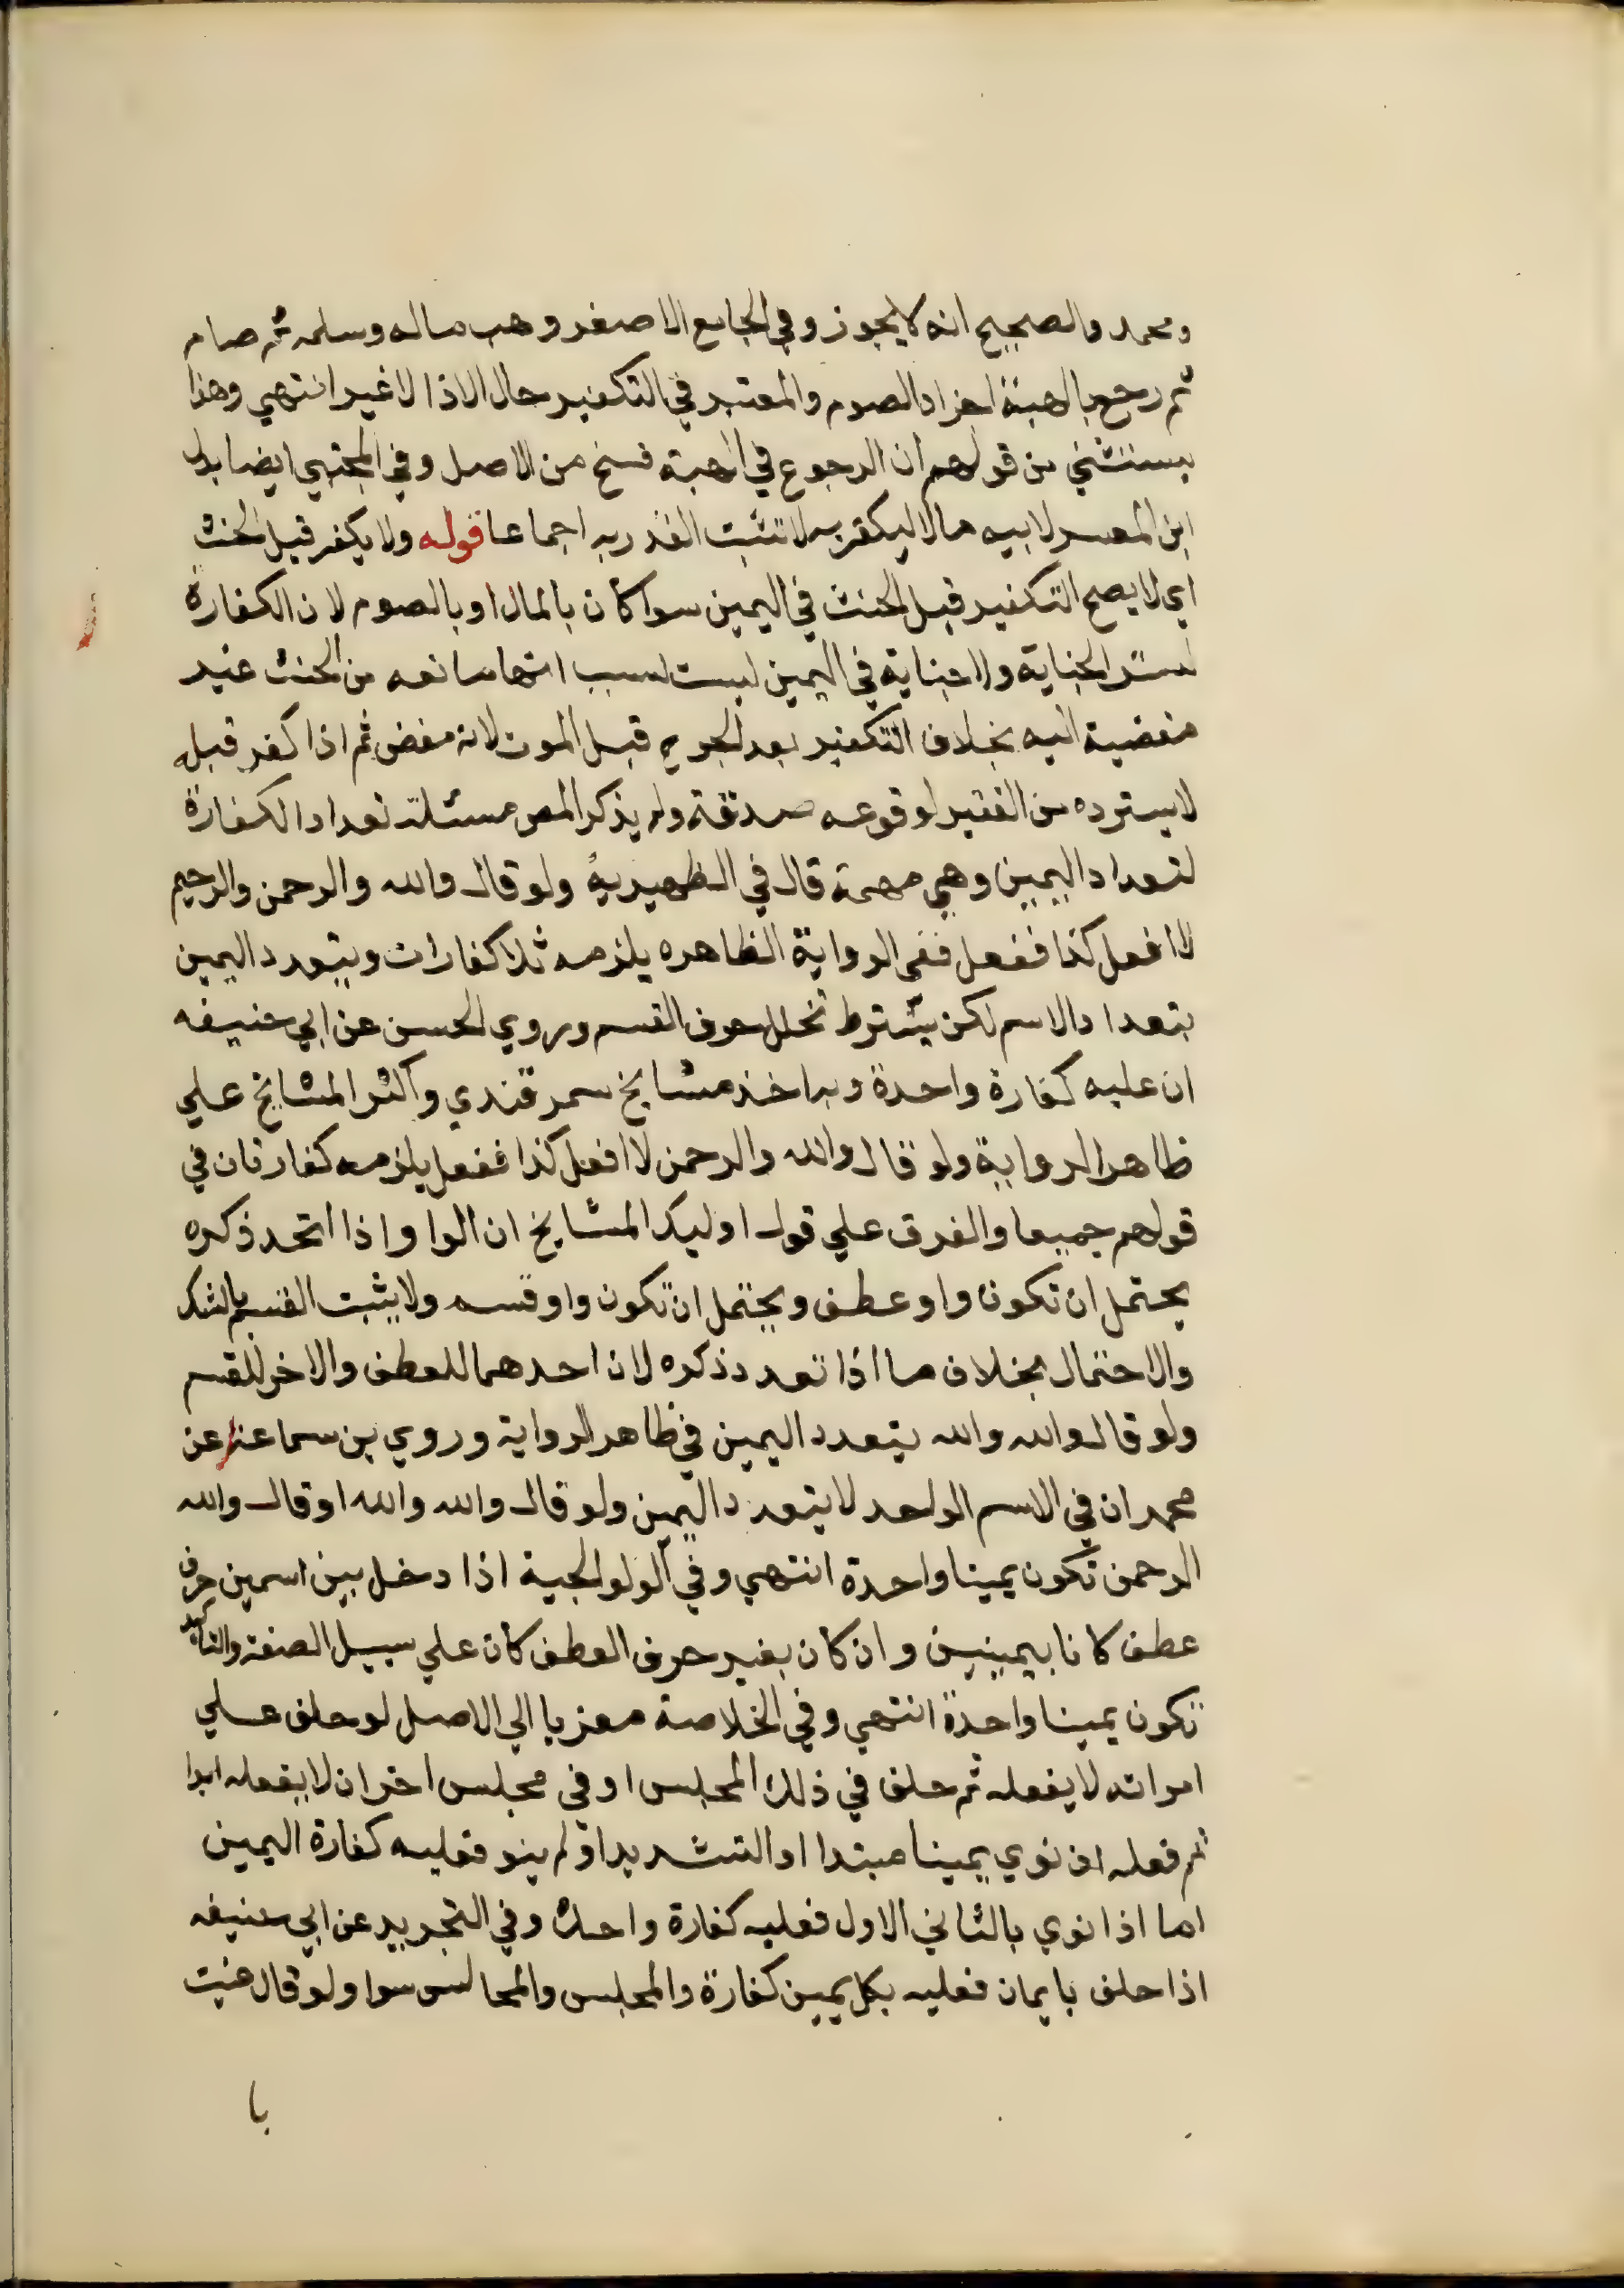 ومحمد والصحيح انه لا يجوز وفي الجامع الاصغر وهب ماله وسلمه ثم صام
ثم رجع بالهبة اجزاه الصوم والمعتبر في التكفير حال الاذا لا غير انتهي وهذا
يستثني من قولهم ان الرجوع في الهبة فسخ من الاصل وفي المجتبي ايضا بدل
ابن المعسر لابيه مالا ليكفر به لا تثبت القدر به اجماعا قوله ولا يكفر قبل الحنث
اي لا يصح التكفير قبل الحنث في اليمين سوا كان بالمال او بالصوم لان الكفارة
لستر الجناية ولا جناية في اليمين ليست لسبب انتها مانعه من الحنث غير
مفضية اليه بخلاف التكفير بعد الجرح قبل الموت لانه مفض ثم اذا كفر قبله
لا يسترده من الفقير لوقوعه صدقة ولم يذكر المص مسئلة تعداد الكفارة
لتعداد اليمين وهي مهمة قال في الظهيرية ولو قال والله والرحمن والرحيم
لا افعل كذا ففعل ففي الرواية الظاهره يلزمه ثلاث كفارات ويتعدد اليمين
بتعداد الاسم لكن يشترط تخلل حرف القسم وروي الحسن عن ابي حنيفه
ان عليه كفارة واحدة وبه اخذ مشايخ سمرقندي واكثر المشايخ علي
ظاهر الرواية ولو قال والله والرحمن لا افعل كذا ففعل يلزمه كفارتان في
قولهم جميعا والفرق علي قول اوليك المشايخ ان الواو اذا اتحد ذكره
يحتمل ان تكون واو عطف ويحتمل ان تكون واو قسم ولا يثبت القسم بالشك
والاحتمال بخلاف ما اذا تعدد ذكره لان احدهما للعطف والاخر للقسم
ولو قال والله والله يتعدد اليمين في ظاهر الرواية وروي بن سماعه عن
محمد ان في الاسم الواحد لا يتعدد اليمين ولو قال والله والله او قال والله
الرحمن تكون يمينا واحدة انتهي وفي الولوالجية اذا دخل بين اسمين حرف
عطف كانا يمينين وان كان بغير حرف العطف كان علي سبيل الصفة والتاكيد
تكون يمينا واحدة انتهي وفي الخلاصة معزيا الي الاصل لو حلف علي
امراته لا يفعله ثم حلف في ذلك المجلس او في مجلس اخر ان لا يفعله ابدا
ثم فعله ان نوي يمينا مبتدا او التشديد او لم ينو فعليه كفارة اليمين
اما اذا نوي بالثاني الاول فعليه كفارة واحدة وفي التجريد عن ابي حنيفه
اذا حلف بايمان فعليه بكل يمين كفارة والمجلس والمجالس سوا ولو قال عنيت
با